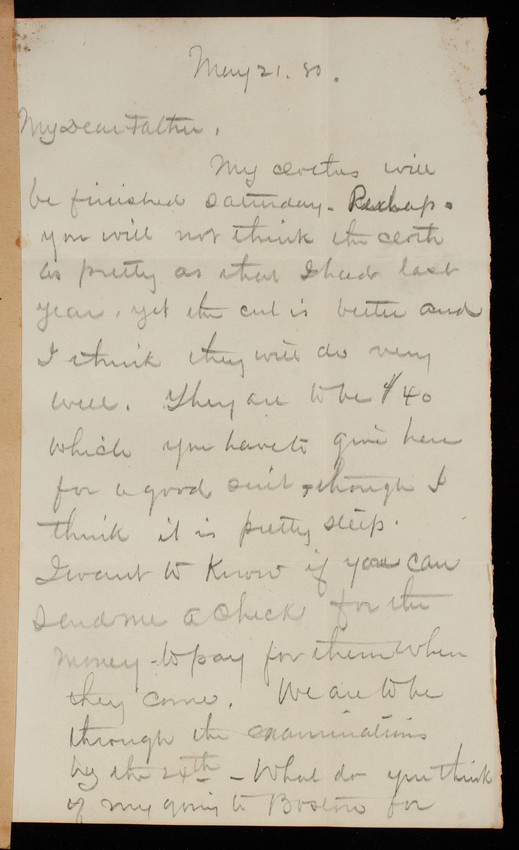 May 21. 80.
My Dear Father,
My clothes will
be finished Saturday - Perhaps
you will not think the cloth
as pretty as that I had last
year, yet the cut is better and
I think they will do very
well. They are to be $40
which you have to give here
for a good suit, though I
think it is pretty steep.
I want to know if you can
send me a check for the
money - to pay for them when
they come. We are to be
through the examinations
by the th - What do you think
of my going to Boston for